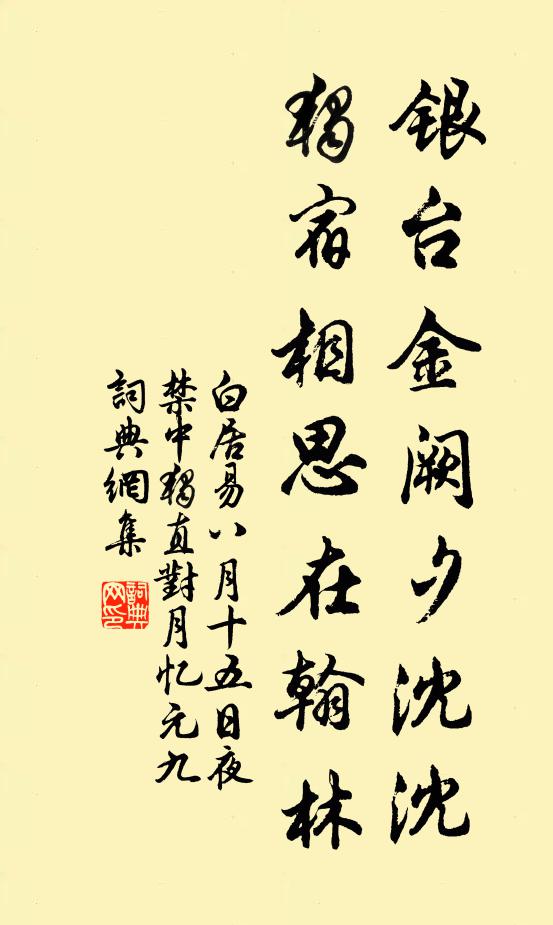 银台金阙夕沈沈
獨宿相思在翰林
白居易八月十五日夜
禁中獨直對月忆元九
詞典網集
詞典網印